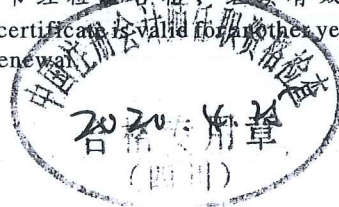 certificate is valid for another ye
enewal.
中国注册会计师任职资格检查
2020.4.2
合格专用章
(四川)